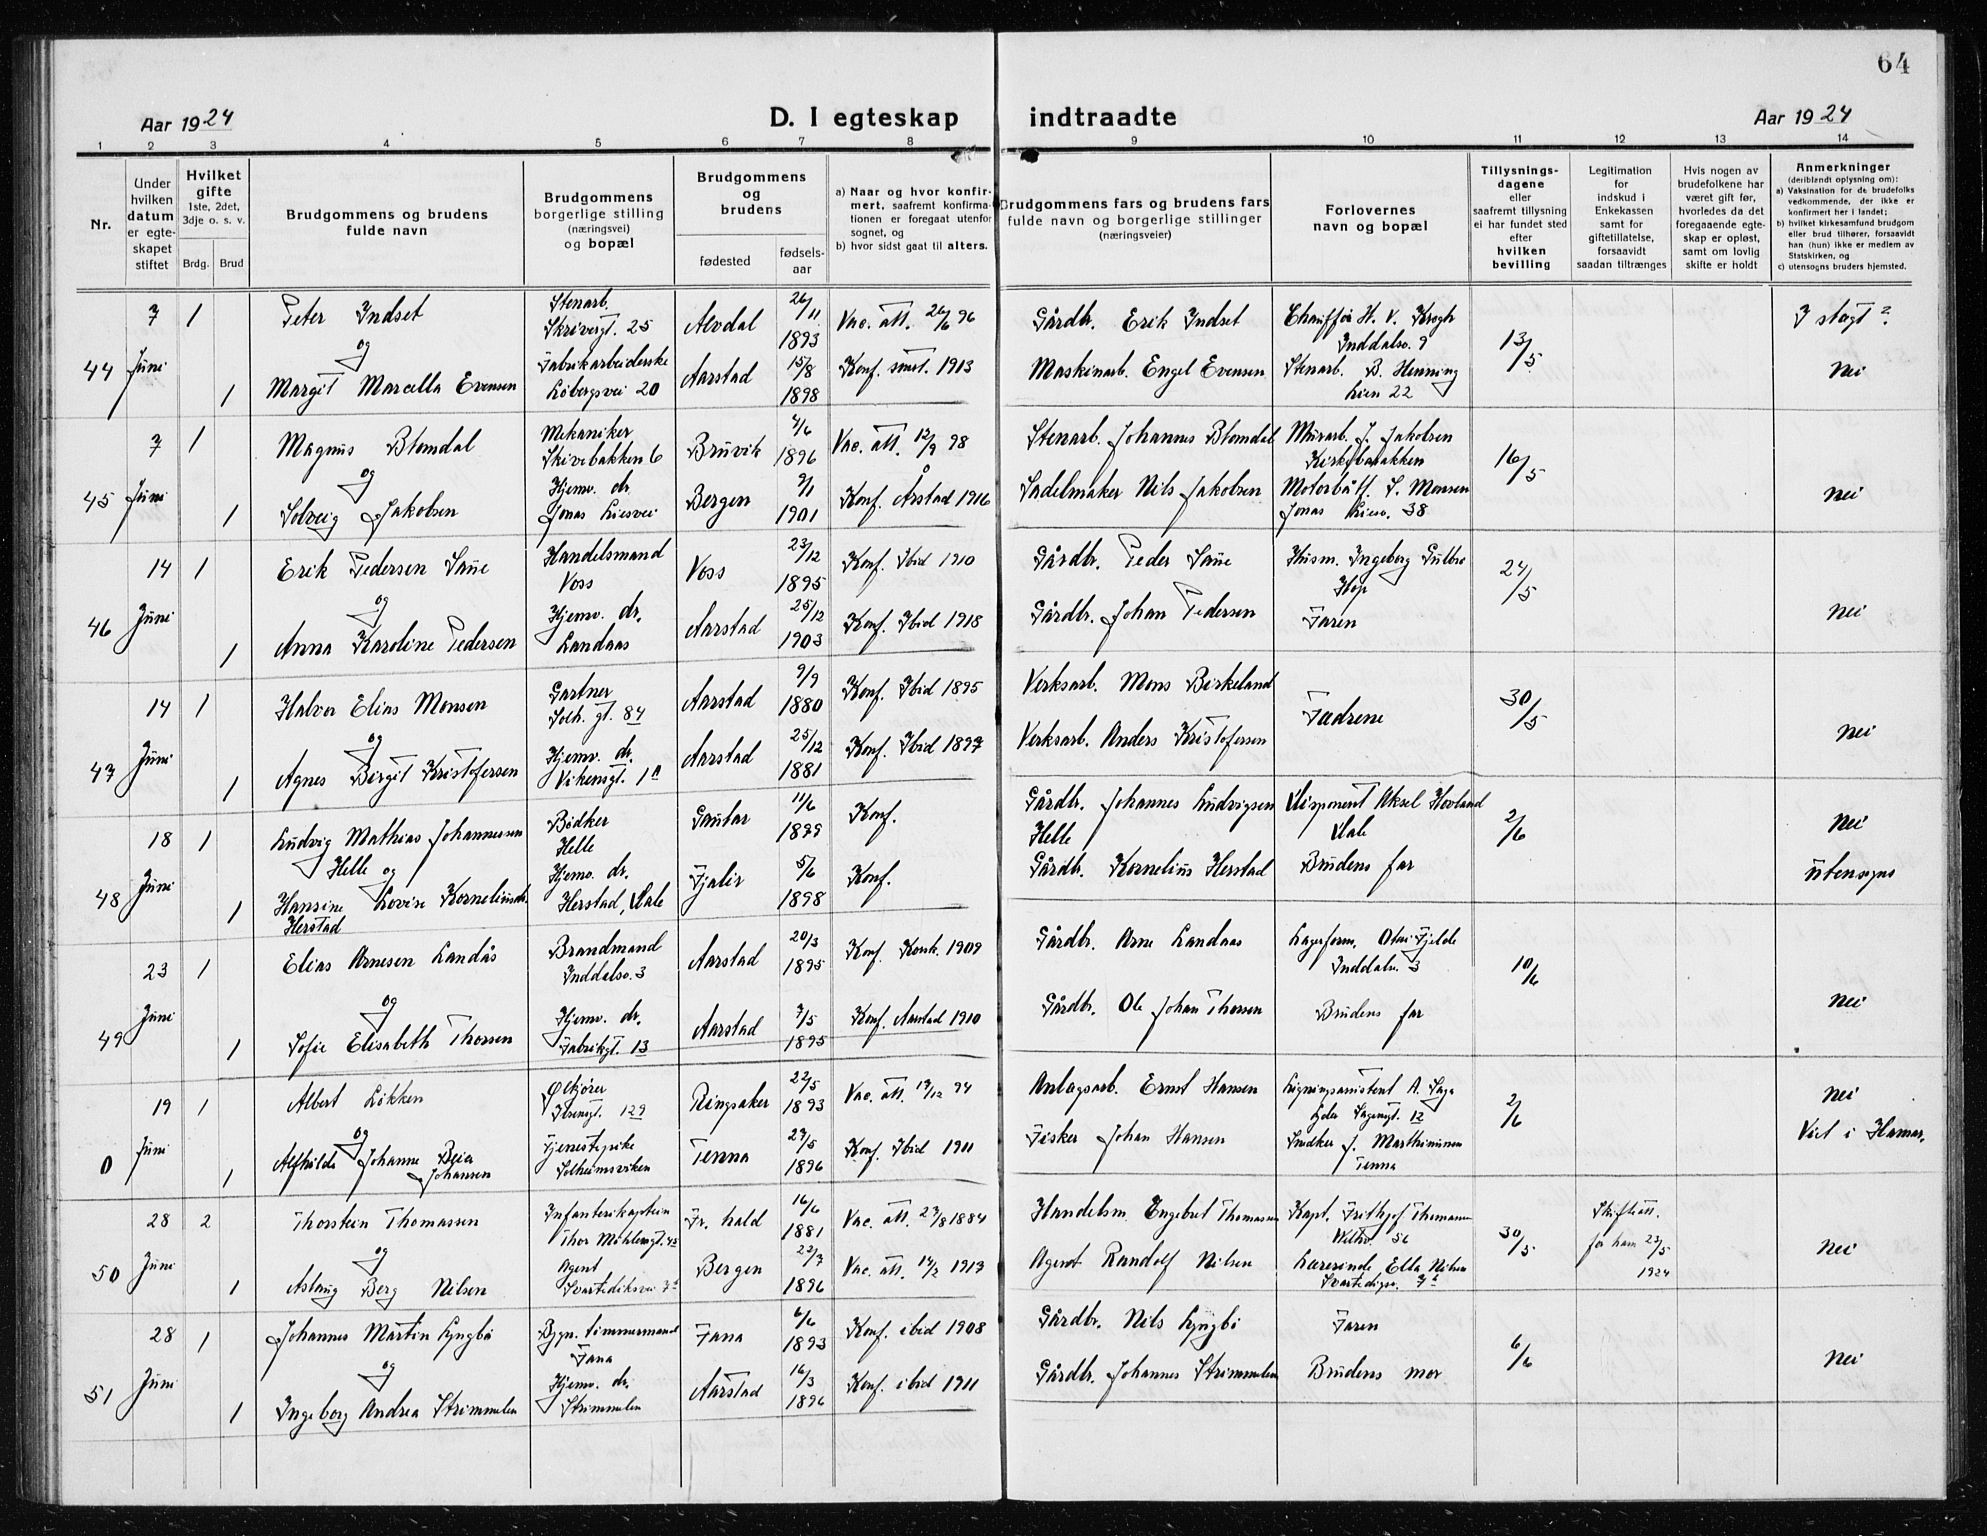 64
Aar 1924
D. I egteskap indtraadte
Aar 1924
1 2 3 4 5 6 7 8 9 10 11 12 13 14
Nr.
Under
hvilken
datum
er egte-
skapet
stiftet
Hvilket
gifte
1ste, 2det,
3dje o. s. v.
Brdg. Brud
Brudgommens og brudens
fulde navn
Brudgommens
borgerlige stilling
(næringsvei)
og bopæl
Brudgommens
og
brudens
fødested
fødsels-
aar
a) Naar og hvor konfir-
mert, saafremt konfirma-
tionen er foregaat utenfor
sognet, og
b) hvor sidst gaat til alters.
Brudgommens fars og brudens fars
fulde navn og borgerlige stillinger
(næringsveier)
Forlovernes
navn og bopæl
Tillysnings-
dagene
eller
saafremt tillysning
ei har fundet sted
efter
hvilken
bevilling
Legitimation
for
indskud i
Enkekassen
samt for
giftetillatelse,
forsaavidt
saadan tiltrænges
Hvis nogen av
brudefolkene har
været gift før,
hvorledes da det
foregaaende egte-
skap er opløst,
samt om lovlig
skifte er holdt
Anmerkninger
(deriblandt oplysning om):
a) Vaksination for de brudefolks
vedkommende, der ikke er
konfirmert her i landet;
b) hvilket kirkesamfund brudgom
eller brud tilhører, forsaavidt
han (hun) ikke er medlem av
Statskirken, og
c) utensogns bruders hjemsted.
44
7
Juni
1
Peter Indset
Stenarb.
Skrivergt. 25
Alvdal
26/11
1893
Vac. att. 26/6 96
Gårdbr. Erik Indset
Chauffør H. V. Krogh
Inddalsv. 9
13/5
I slegt?
og
1
Margit Marcella Evensen
Fabrikarbeiderske
Løbergsvei 20
Aarstad
15/8
1898
Konf. smst. 1913
Maskinarb. Engel Evensen
Stenarb. B. Henning
Lien 22
Nei
45
7
Juni
1
Magnus Blomdal
Mekaniker
Skivebakken 6
Bruvik
4/6
1896
Vac. att. 12/9 98
Stenarb. Johannes Blomdal
Murarb. J. Jakobsen
Kirkebakken
16/5
og
1
Solveig Jakobsen
Hjemv. dr.
Jonas Liesvei
Bergen
1901
Konf. Årstad 1916
Sadelmaker Nils Jakobsen
Motorbåtf. S. Monsen
Jonas Liesv. 38
Nei
46
14
Juni
1
Erik Pedersen Saue
Handelsmand
Voss
Voss
23/12
1895
Konf. Ibid 1910
Gårdbr. Peder Saue
Husm. Ingeborg Gullbrå
Hop
24/5
og
1
Anna Karoline Pedersen
Hjemv. dr.
Landaas
Aarstad
25/12
1903
Konf. Ibid 1918
Gårdbr. Johan Pedersen
Faren
Nei
47
14
Juni
1
Halvor Elias Monsen
Gartner
Solh. gt. 84
Aarstad
9/9
1880
Konf. Ibid 1895
Verksarb. Mons Birkeland
Fædrene
30/5
Nei
og
1
Agnes Birgit Kristofersen
Hjemv. dr.
Vikensgt. 1 a
Aarstad
25/12
1881
Konf. Ibid 1897
Verksarb. Anders Kristofersen
48
18
Juni
1
Ludvig Mathias Johannesen
Helle og
Bødker
Helle
Gaular
11/6
1899
Konf.
Gårdbr. Johannes Ludvigsen
Helle
Disponent Aksel Hovland
Dale
2/6
Nei
1
Hansine Lovise Korneliusdr.
Herstad
Hjemv. dr.
Herstad, Dale
Fjaler
5/6
1898
Konf.
Gårdbr. Kornelius Herstad
Brudens far
utensogns
49
23
Juni
1
Elias Arnesen Landås
Brandmand
Inddalsv. 3
Aarstad
20/3
1895
Konf. Korsk. 1909
Gårdbr. Arne Landaas
Lagerform. Olai Fjelde
Inddalsv. 3
10/6
og
1
Sofie Elisabeth Thorsen
Hjemv. dr.
Fabrikgt. 13
Aarstad
7/5
1895
Konf. Aarstad 1910
Gårdbr. Ole Johan Thorsen
Brudens far
Nei
0
19
Juni
1
Albert Løkken
Ølkjører
Ibsensgt. 129
Ringsaker
22/5
1893
Vac. att. 14/12 94
Anlagsarb. Ernst Hansen
Ligningsassistent A. Saga
12
2/6
Nei
og
1
Alfhilda Johanne Beia
Johansen
Tjenestepike
Solheimsviken
Tenna
27/5
1896
Konf. Ibid 1911
Fisker Johan Hansen
Snedker J. Marthinusen
Tenna
Viet i Hamar.
50
28
Juni
2
1
Thorstein Thomassen
Infanterikaptein
Thor Møhlensgt. 43
Fr. hald
16/6
1881
Vac. att. 27/8 1884
Handelsm. Engebret Thomassen
Kapt. Frithjof Thomassen
56
30/5
Skifteatt.
for ham 23/5
1924
Nei
og
Aslaug Berg Nilsen
Agent
Svartediksvei 7 a
Bergen
22/7
1896
Vac. att. 14/2 1913
Agent Randolf Nilsen
Lærerinde Ella Nilsen
Svartedigsv. 7 a
51
28
Juni
1
Johannes Martin Lyngbø
Bygn. tømmermand
Fana
Fana
6/6
1893
Konf. ibid 1908
Gårdbr. Nils Lyngbø
Faren
6/6
og
1
Ingeborg Andrea Strimmelen
Hjemv. dr.
Strimmelen
Aarstad
16/3
1896
Konf. ibid 1911
Gårdbr. Johannes Strimmelen
Brudens mor
Nei